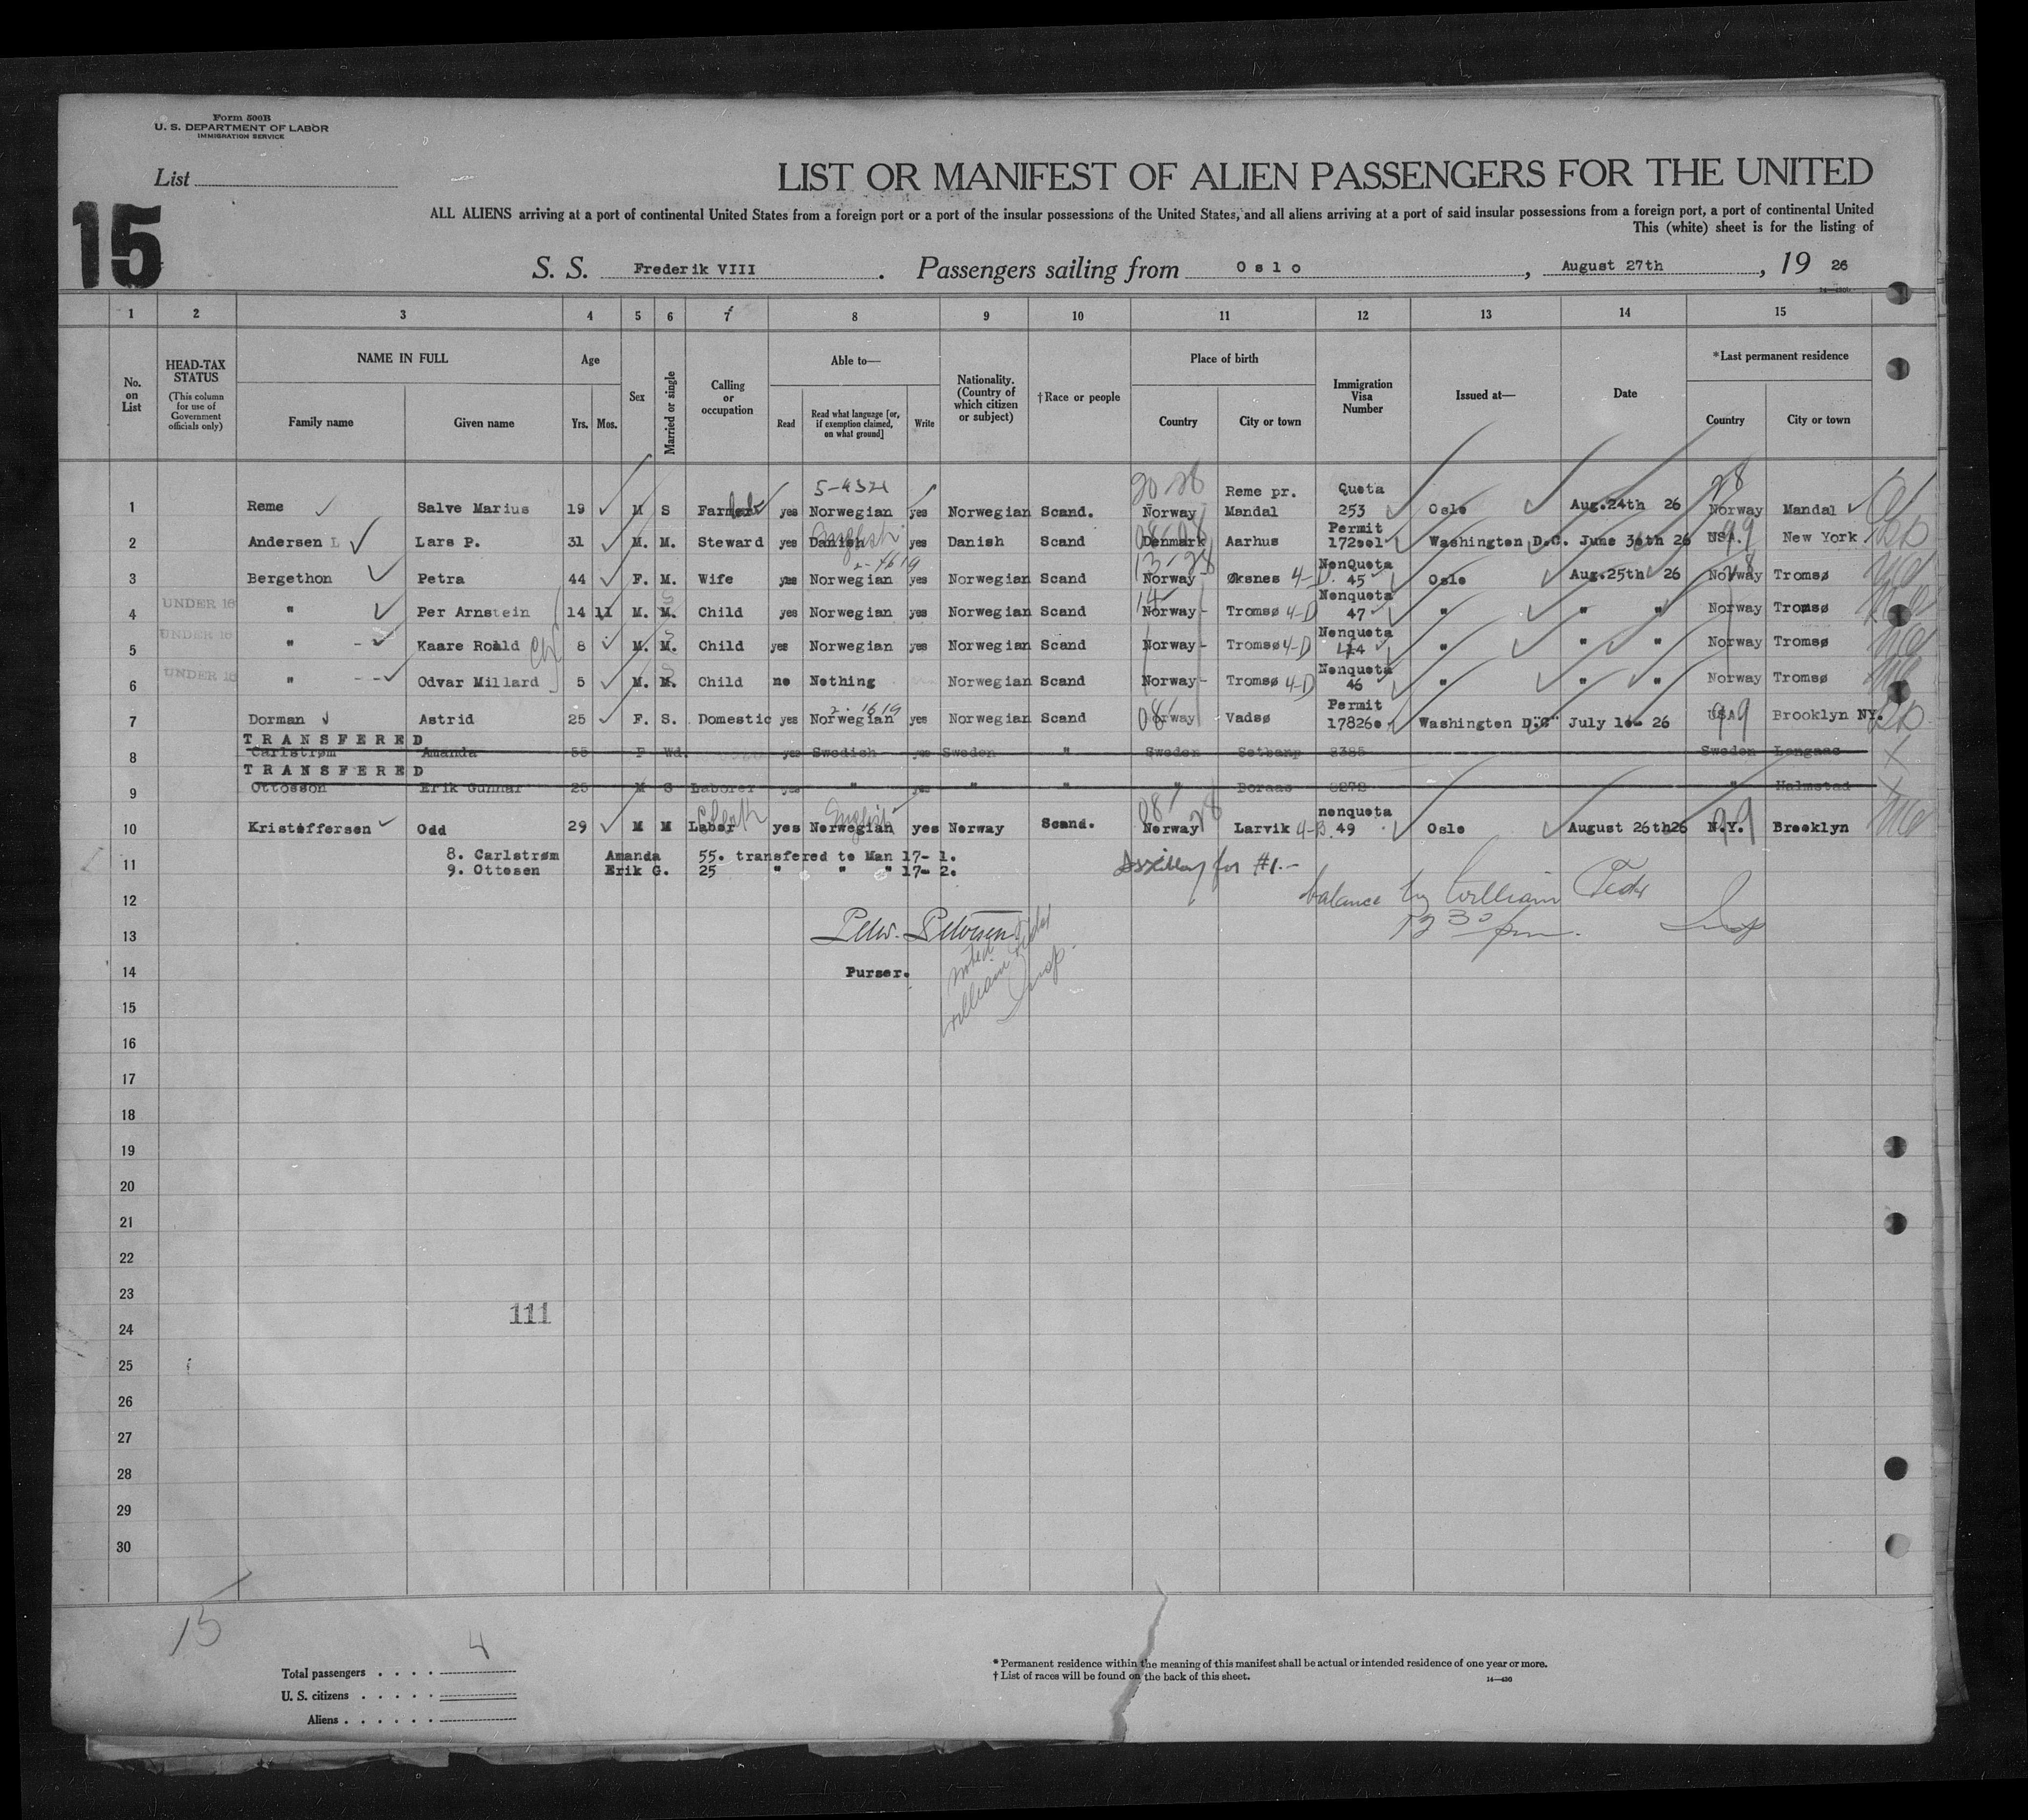 Form 500B
U. S. DEPARTMENT OF LABOR
IMMIGRATION SERVICE
List
LIST OR MANIFEST OF ALIEN PASSENGERS FOR THE UNITED
15
ALL ALIENS arriving at a port of continental United States from a foreign port or a port of the insular possessions of the United States, and all aliens arriving at a port of said insular possessions from a foreign port, a port of continental United
This (white) sheet is for the listing of
S. S. Frederik VIII . Passengers sailing from Oslo , August 27th , 19 26
1 2 3 4 5 6 7 8 9 10 11 12 13 14 15
No. on List
HEAD-TAX STATUS
(This column for use of Government officials only)
NAME IN FULL
Family name Given name
Age
Yrs. Mos.
Sex
Married or single
Calling or occupation
Able to—
Read
Read what language [or, if exemption claimed, on what ground]
Write
Nationality. (Country of which citizen or subject)
†Race or people
Place of birth
Country City or town
Immigration Visa Number
Issued at—
Date
*Last permanent residence
Country City or town
5-4321 20-28 Reme pr. Quota 28
1 Reme Salve Marius 19 M S Farm yes Norwegian yes Norwegian Scand. Norway Mandal 253 Oslo Aug.24th 26 Norway Mandal
English Permit 99
2 Andersen L Lars P. 31 M. M. Steward yes Danish yes Danish Scand Denmark Aarhus 172001 Washington D.C. June 30th 26 USA. New York
2-4619 13-28 NonQuota 28
3 Bergethon Petra 44 F. M. Wife yes Norwegian yes Norwegian Scand Norway Øksnes 4-D. 45 Oslo Aug.25th 26 Norway Tromsø
UNDER 16 S 14 Nonquota
4 " Per Arnstein 14 11 M. M. Child yes Norwegian yes Norwegian Scand Norway Tromsø 4-D 47 " " " Norway Tromsø
UNDER 16 S Nonquota
5 " Kaare Roald 8 M. M. Child yes Norwegian yes Norwegian Scand Norway Tromsø 4-D 44 " " " Norway Tromsø
UNDER 16 S Nonquota
6 " Odvar Millard 5 M. M. Child no Nothing Norwegian Scand Norway Tromsø 4-D 46 " " " Norway Tromsø
2-1619 08 Permit 99
7 Dorman Astrid 25 F. S. Domestic yes Norwegian yes Norwegian Scand Norway Vadsø 178260 Washington D.C July 10- 26 USA Brooklyn NY.
TRANSFERED
8 Carlstrøm Amanda 55 F Wd. yes Swedish yes Sweden " Sweden 8385 Sweden
TRANSFERED
9 Ottosson Erik Gunnar 25 M S Laborer yes " yes " " " Boraas 8278 " Halmstad
English 08 28 nonquota 99
10 Kristoffersen Odd 29 M M Labor yes Norwegian yes Norway Scand. Norway Larvik 4-B. 49 Oslo August 26th26 N.Y. Brooklyn
11 8. Carlstrøm Amanda 55. transfered to Man 17- 1.
9. Ottosen Erik G. 25 " " " 17- 2.
for #1.-
12 balance by William
12 30 pm. Insp
13 Peter Petersen
14 Purser.
noted
William
Insp.
15
16
17
18
19
20
21
22
23
111
24
25
26
27
28
29
30
15
4
Total passengers
U. S. citizens
Aliens
* Permanent residence within the meaning of this manifest shall be actual or intended residence of one year or more.
† List of races will be found on the back of this sheet.
14—430